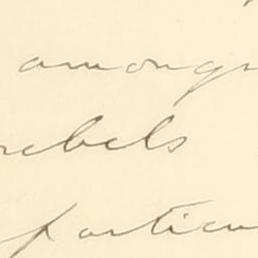 among
rebels
particu